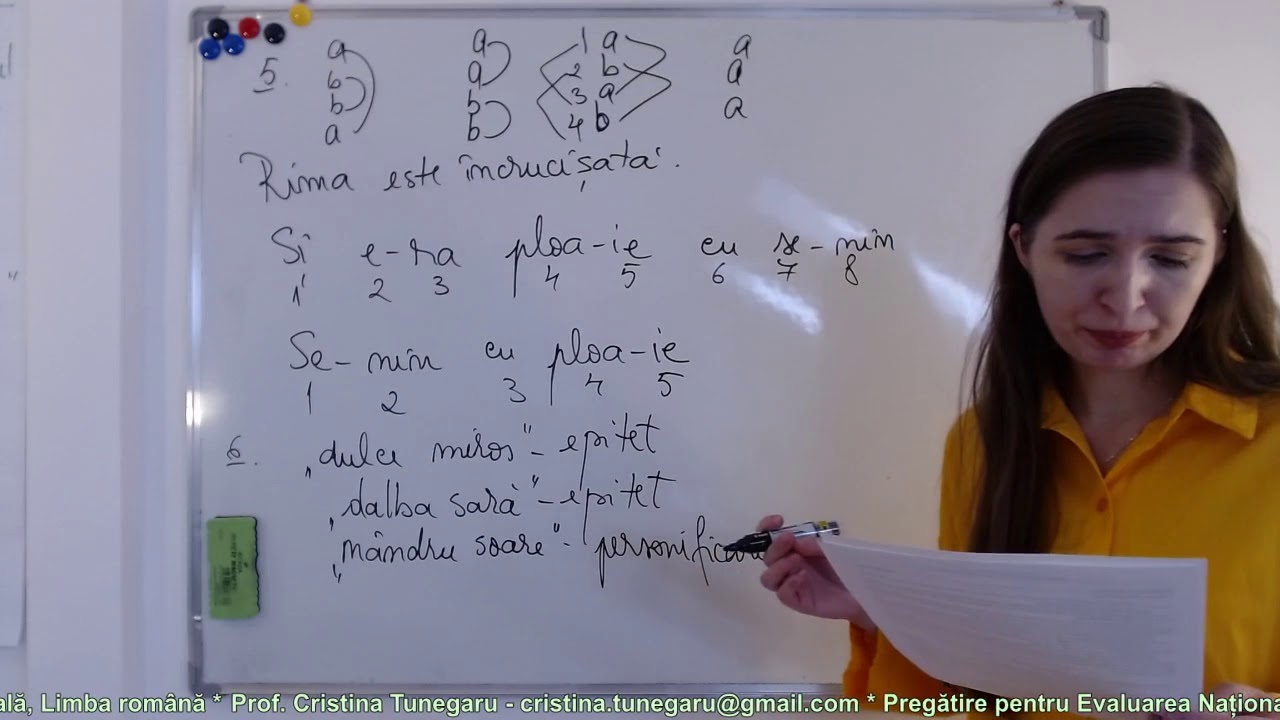 5. a a 1 a a
b a 2 b a
b b 3 a a
a b 4 b
Rima este încrucișată.
Și e-ra ploa-ie cu se-nin
1 2 3 4 5 6 7 8
Se-nin cu ploa-ie
1 2 3 4 5
6. „dulce miros" - epitet
„dalba sară" - epitet
„mândru soare" - personificare
ală, Limba română * Prof. Cristina Tunegaru - cristina.tunegaru@gmail.com * Pregătire pentru Evaluarea Naționa